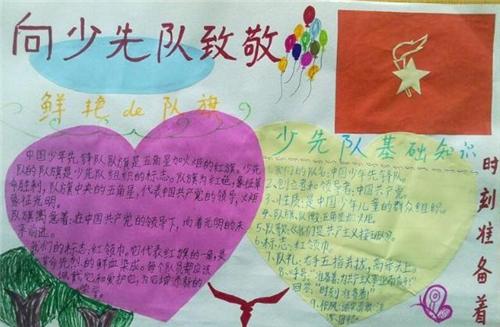 向少先队致敬
鲜艳de队旗
中国少年先锋队队旗是五角星加火炬的红旗。少先
队的队旗是少先队组织的标志。队旗为红色,象征革
命胜利,队旗中央的五角星,代表中国共产党的领导,火炬
象征光明。
队旗寓意着:在中国共产党的领导下,向着光明的未
来前进。
我们的标志:红领巾。它代表红旗的一角,是
革命先烈的鲜血染成。每个队员都应该
佩戴它和爱护它,为它增添新的
荣誉。
少先队基础知识
1.我们的队名:中国少年先锋队。
2.创立者和领导者:中国共产党。
3.性质:是中国少年儿童的群众组织。
4.队旗、队徽:五角星加火炬
5.队歌:《我们是共产主义接班人》。
6.标志:红领巾。
7.队礼:右手五指并拢,高举头上。
8.呼号:"准备着:为共产主义事业而奋斗!"
回答:"时刻准备着!"
9.作风:诚实、勇敢、活
时刻准备着